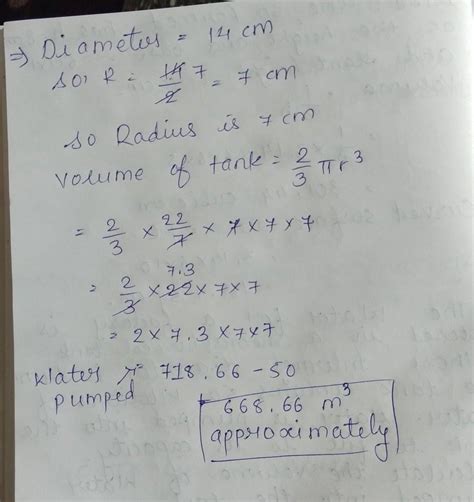 ⇒ Diameter = 14 cm
so, R = 14/2 7 = 7 cm
so Radius is 7 cm
volume of tank = 2/3 πr³
= 2/3 × 22/7 × 7 × 7 × 7
7.3
= 2/3 × 22 × 7 × 7
= 2 × 7.3 × 7×7
Water = 718.66 - 50
pumped
668.66 m³
approximately